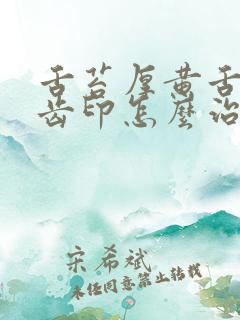 舌苔厚黄舌
齿印怎麽治
宋希斌
未经同意禁止转载